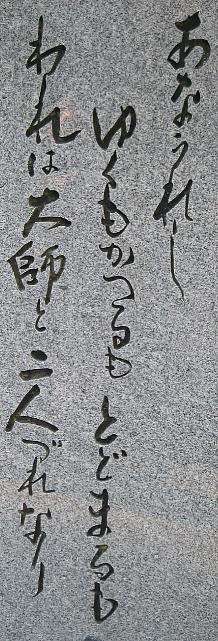 あなうれし
ゆくもかへるも とどまるも
われは大師と二人づれなり